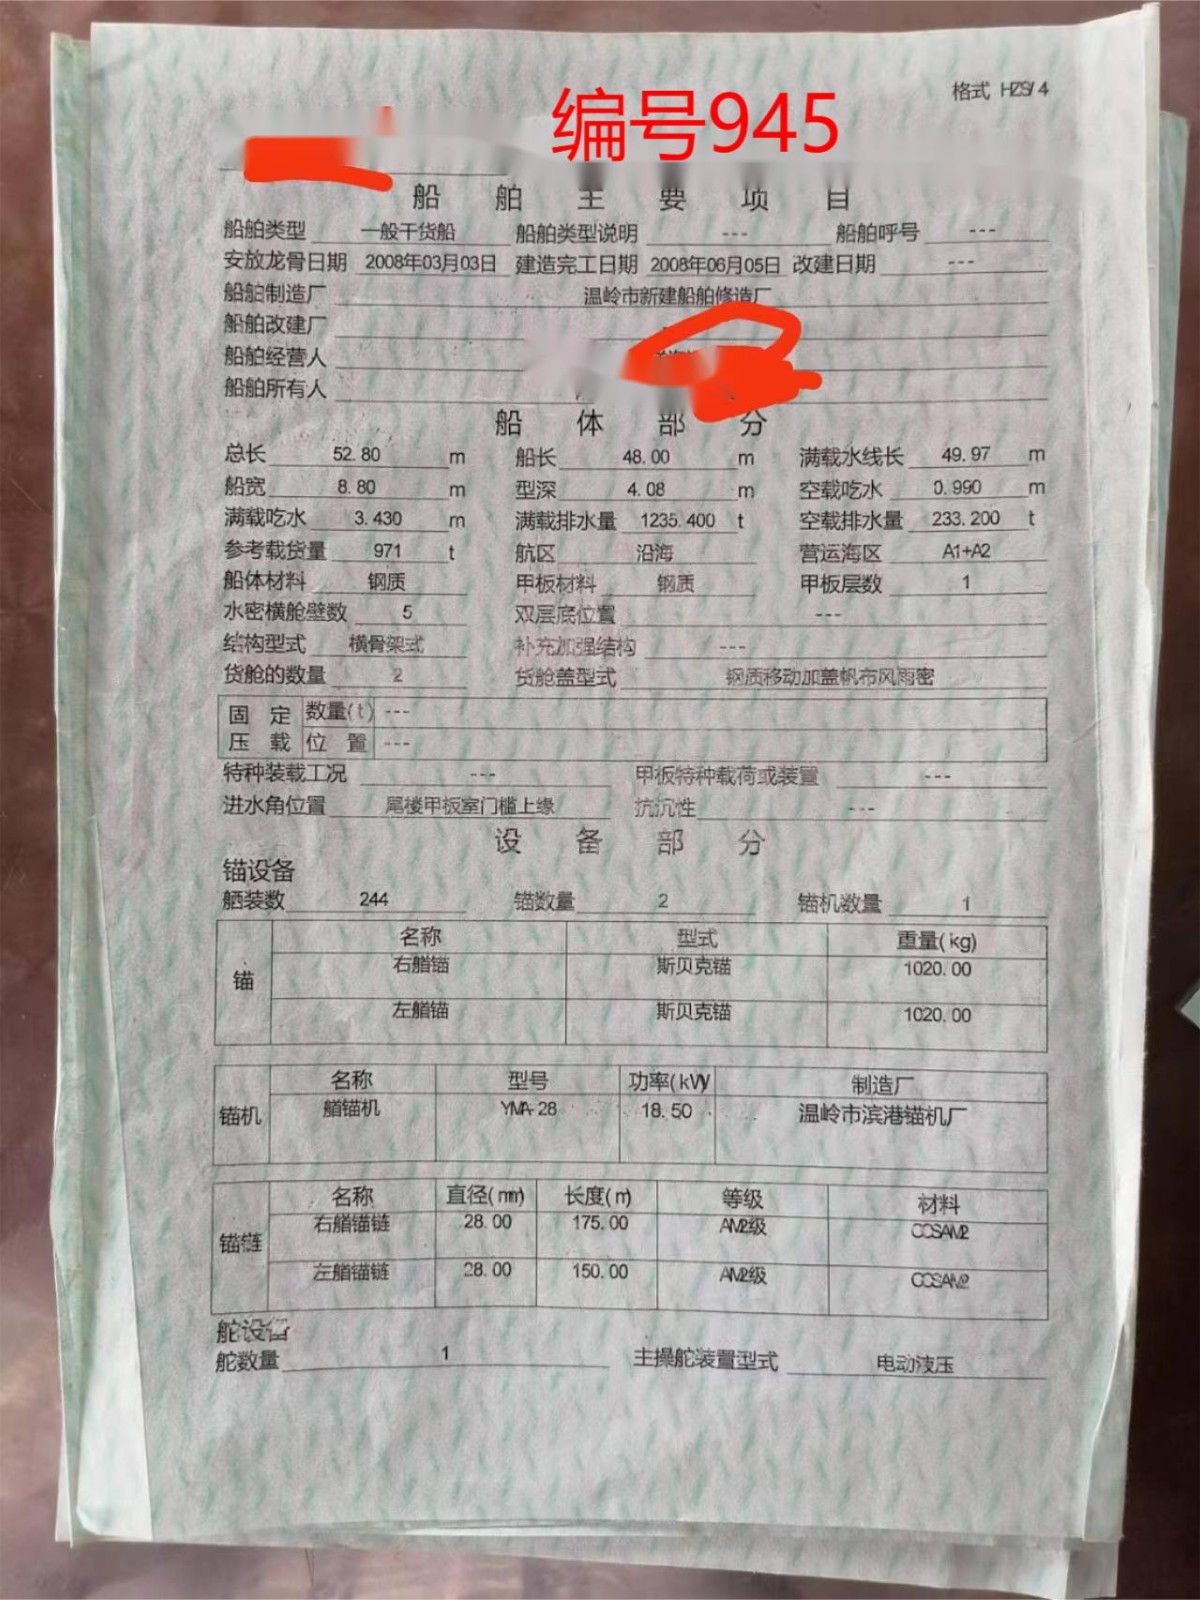 格式 HZS/4
编号945
船舶主要项目
船舶类型 一般干货船 船舶类型说明 --- 船舶呼号 ---
安放龙骨日期 2008年03月03日 建造完工日期 2008年06月05日 改建日期 ---
船舶制造厂 温岭市新建船舶修造厂
船舶改建厂
船舶经营人
船舶所有人
船体部分
总长 52.80 m 船长 48.00 m 满载水线长 49.97 m
船宽 8.80 m 型深 4.08 m 空载吃水 0.990 m
满载吃水 3.430 m 满载排水量 1235.400 t 空载排水量 233.200 t
参考载货量 971 t 航区 沿海 营运海区 A1+A2
船体材料 钢质 甲板材料 钢质 甲板层数 1
水密横舱壁数 5 双层底位置 ---
结构型式 横骨架式 补充加强结构 ---
货舱的数量 2 货舱盖型式 钢质移动加盖帆布风雨密
固定 数量(t) ---
压载 位置 ---
特种装载工况 --- 甲板特种载荷或装置 ---
进水角位置 尾楼甲板室门槛上缘 抗沉性 ---
设备部分
锚设备
舾装数 244 锚数量 2 锚机数量 1
锚 名称 型式 重量(kg)
右艏锚 斯贝克锚 1020.00
左艏锚 斯贝克锚 1020.00
锚机 名称 型号 功率(kW) 制造厂
艏锚机 YMA-28 18.50 温岭市滨港锚机厂
锚链 名称 直径(mm) 长度(m) 等级 材料
右艏锚链 28.00 175.00 AM2级 CCSAM2
左艏锚链 28.00 150.00 AM2级 CCSAM2
舵设备
舵数量 1 主操舵装置型式 电动液压